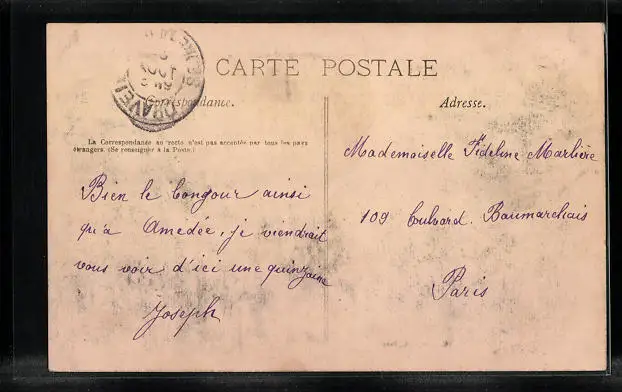 CARTE POSTALE
Correspondance.
Adresse.
La Correspondance au recto n'est pas acceptée par tous les pays
étrangers. (Se renseigner à la Poste.)
Bien le bongour ainsi
qu'à Amedée, je viendrait
vous voir d'ici une quinzaine
Joseph
Mademoiselle Fideline Marlière
109 bulvard. Baumarchais
Paris
DRAVEIL